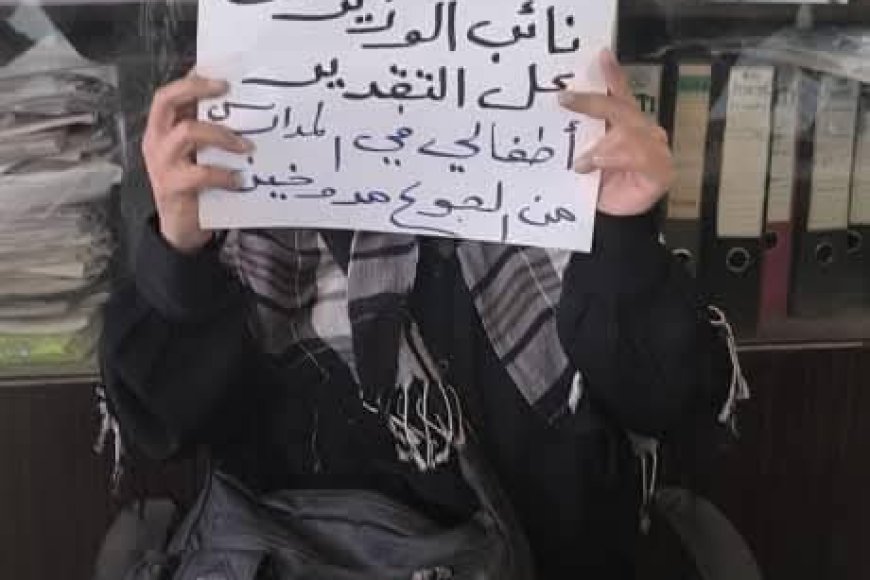 نائب الوزير
محل التقدير
أطفالي في المدارس
من الجوع مدوخين